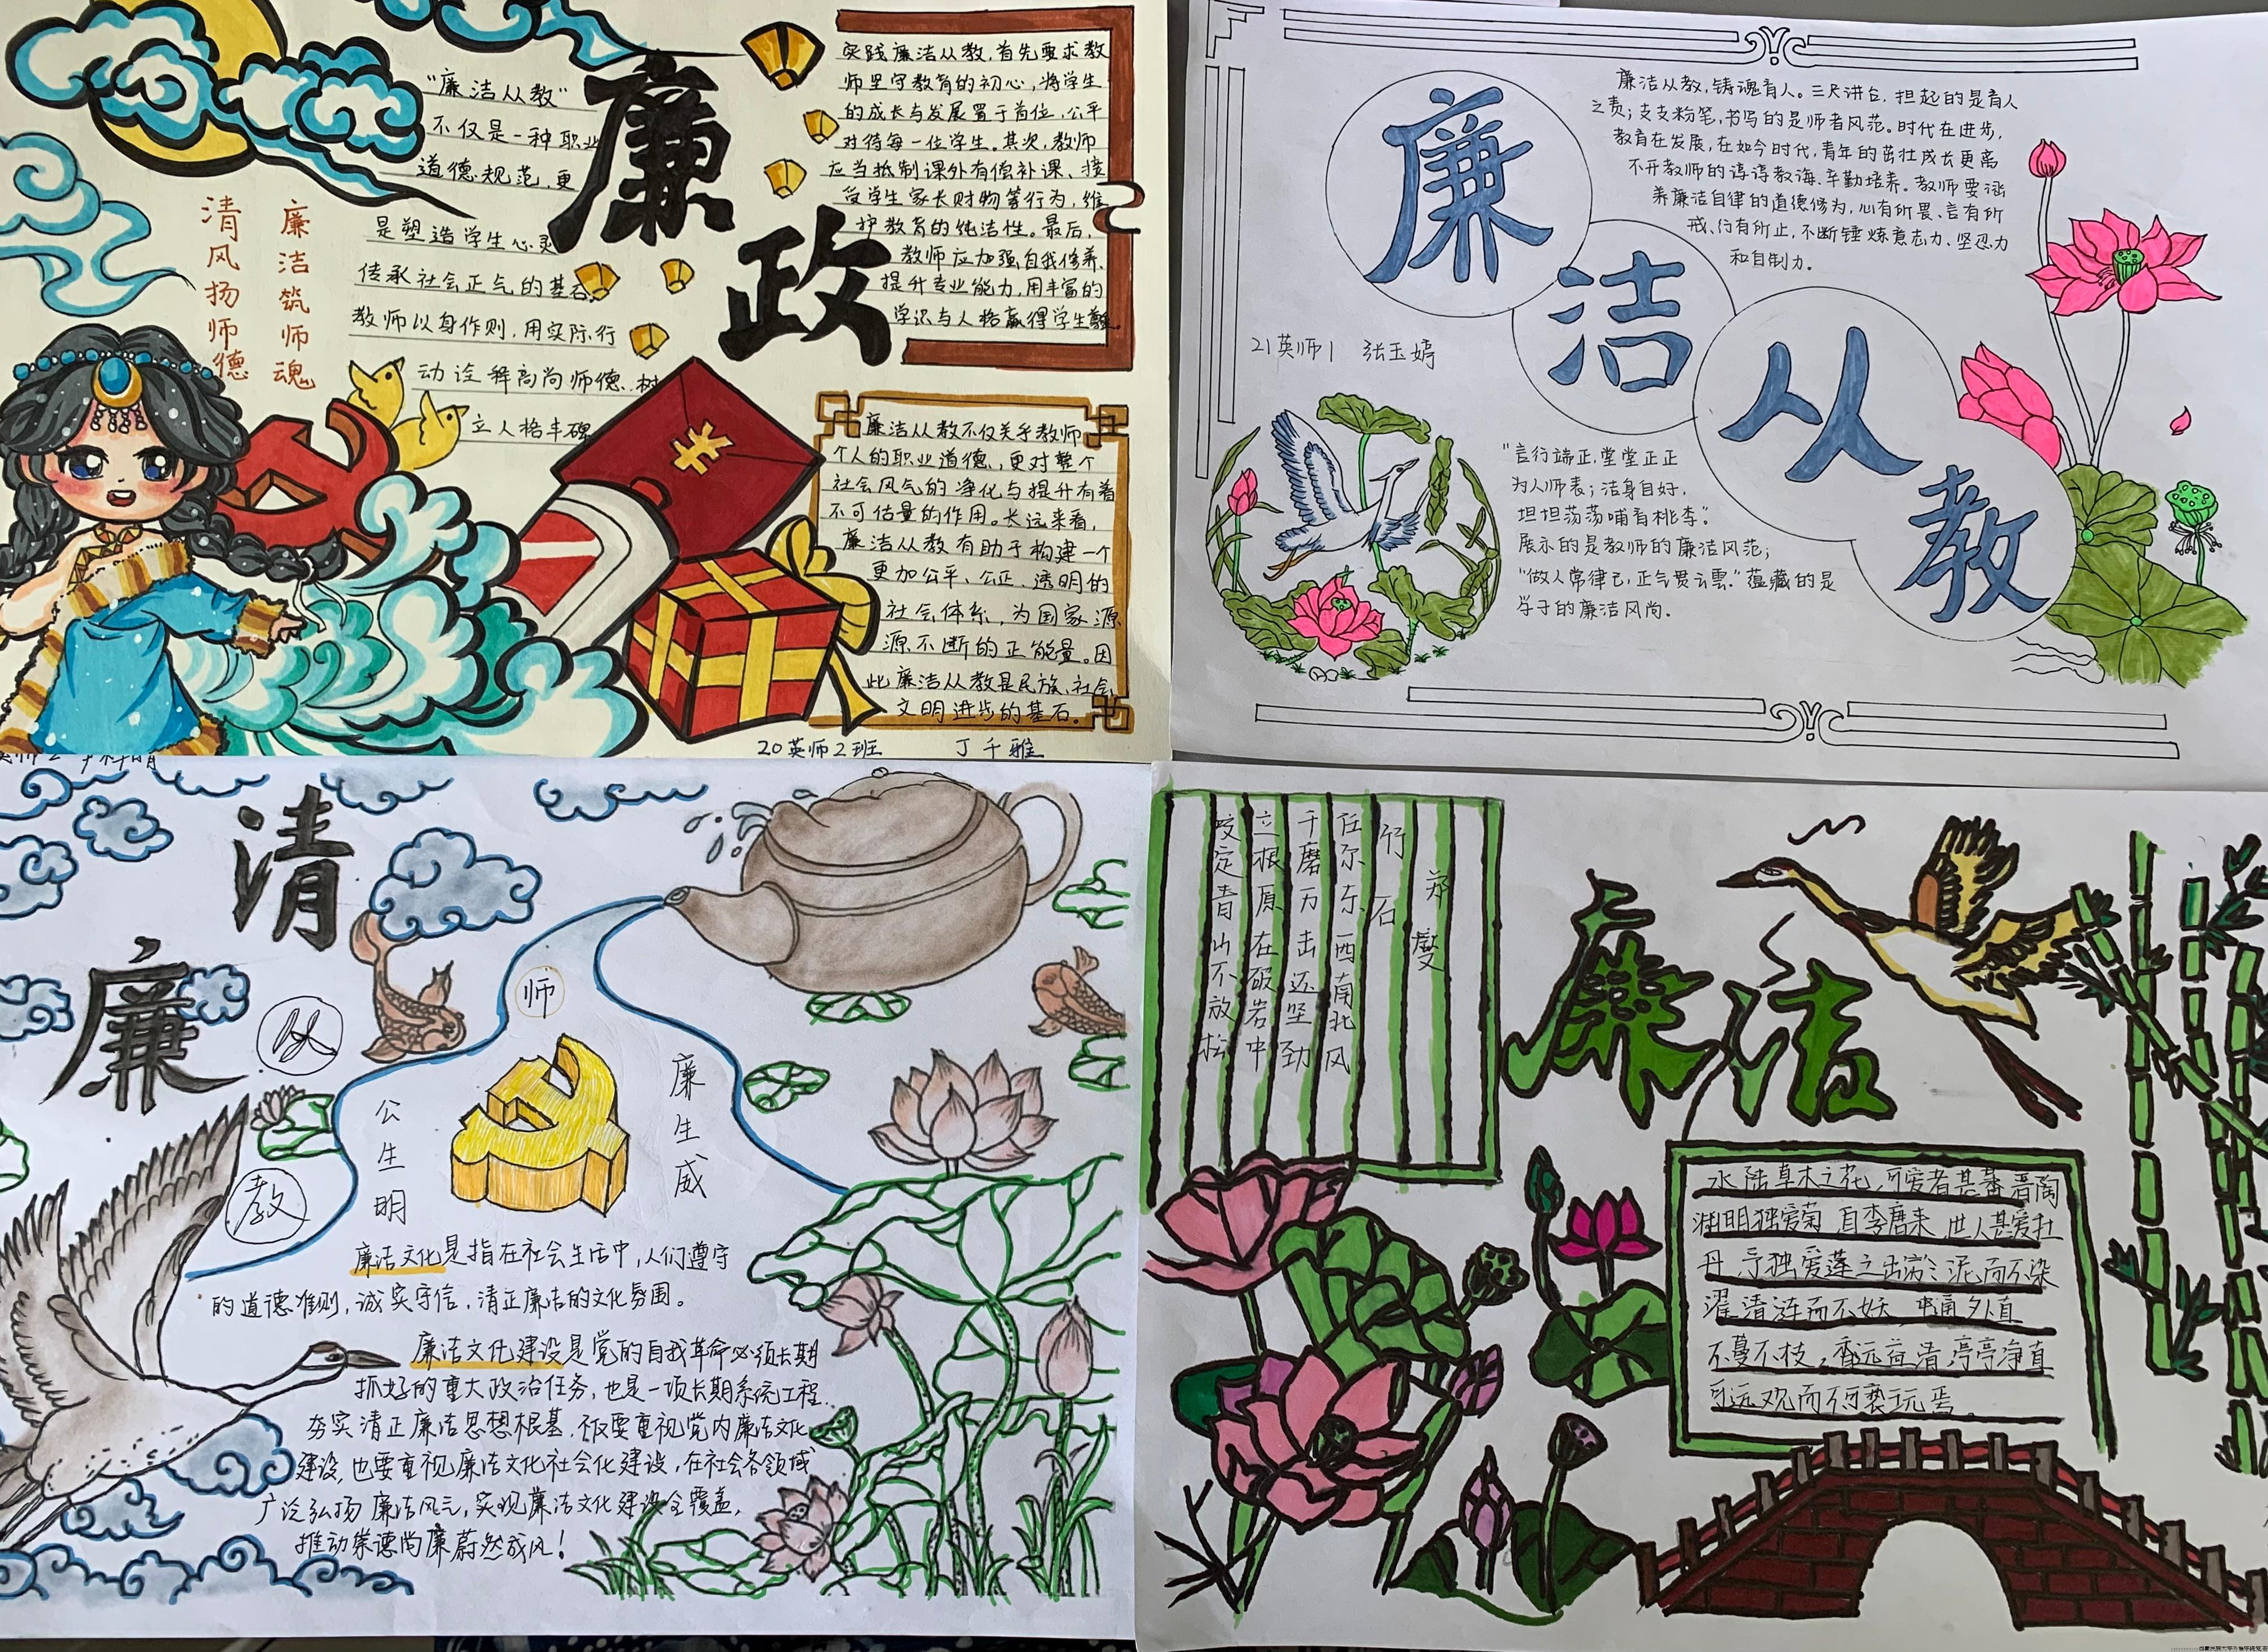 "廉洁从教"
不仅是一种职业
道德规范,更
是塑造学生心灵
传承社会正气的基石,
教师以身作则,用实际行
动诠释高尚师德,树
立人格丰碑
廉洁筑师魂
清风扬师德
廉政
实践廉洁从教,首先要求教
师坚守教育的初心,将学生
的成长与发展置于首位,公平
对待每一位学生。其次,教师
应当抵制课外有偿补课、接
受学生家长财物等行为,维
护教育的纯洁性。最后,
教师应加强自我修养、
提升专业能力,用丰富的
学识与人格赢得学生尊重。
廉洁从教不仅关乎教师
个人的职业道德,更对整个
社会风气的净化与提升有着
不可估量的作用。长远来看,
廉洁从教有助于构建一个
更加公平、公正、透明的
社会体系,为国家源
源不断的正能量。因
此廉洁从教是民族、社会
文明进步的基石。
20英师2班 丁千雅
廉洁从教
廉洁从教,铸魂育人。三尺讲台,担起的是育人
之责;支支粉笔,书写的是师者风范。时代在进步,
教育在发展,在如今时代,青年的茁壮成长更离
不开教师的谆谆教诲、辛勤培养。教师要涵
养廉洁自律的道德修为,心有所畏、言有所
戒、行有所止,不断锤炼意志力、坚忍力
和自制力。
21英师1 张玉婷
"言行端正,堂堂正正
为人师表;洁身自好,
坦坦荡荡哺育桃李."
展示的是教师的廉洁风范;
"做人常律己,正气贯云霄."蕴藏的是
学子的廉洁风尚.
清廉
从
教
师
公生明
廉生威
廉洁文化是指在社会生活中,人们遵守
的道德准则,诚实守信,清正廉洁的文化氛围。
廉洁文化建设是党的自我革命必须长期
抓好的重大政治任务,也是一项长期系统工程.
夯实清正廉洁思想根基,不仅要重视党内廉洁文化
建设,也要重视廉洁文化社会化建设,在社会各领域
广泛弘扬廉洁风气,实现廉洁文化建设全覆盖,
推动崇德尚廉蔚然成风!
郑燮
竹石
任尔东西南北风
千磨万击还坚劲
立根原在破岩中
咬定青山不放松
廉洁
水陆草木之花,可爱者甚蕃晋陶
渊明独爱菊 自李唐来 世人甚爱牡
丹 予独爱莲之出淤泥而不染
濯清涟而不妖 中通外直
不蔓不枝,香远益清 亭亭净直
可远观而不可亵玩焉。